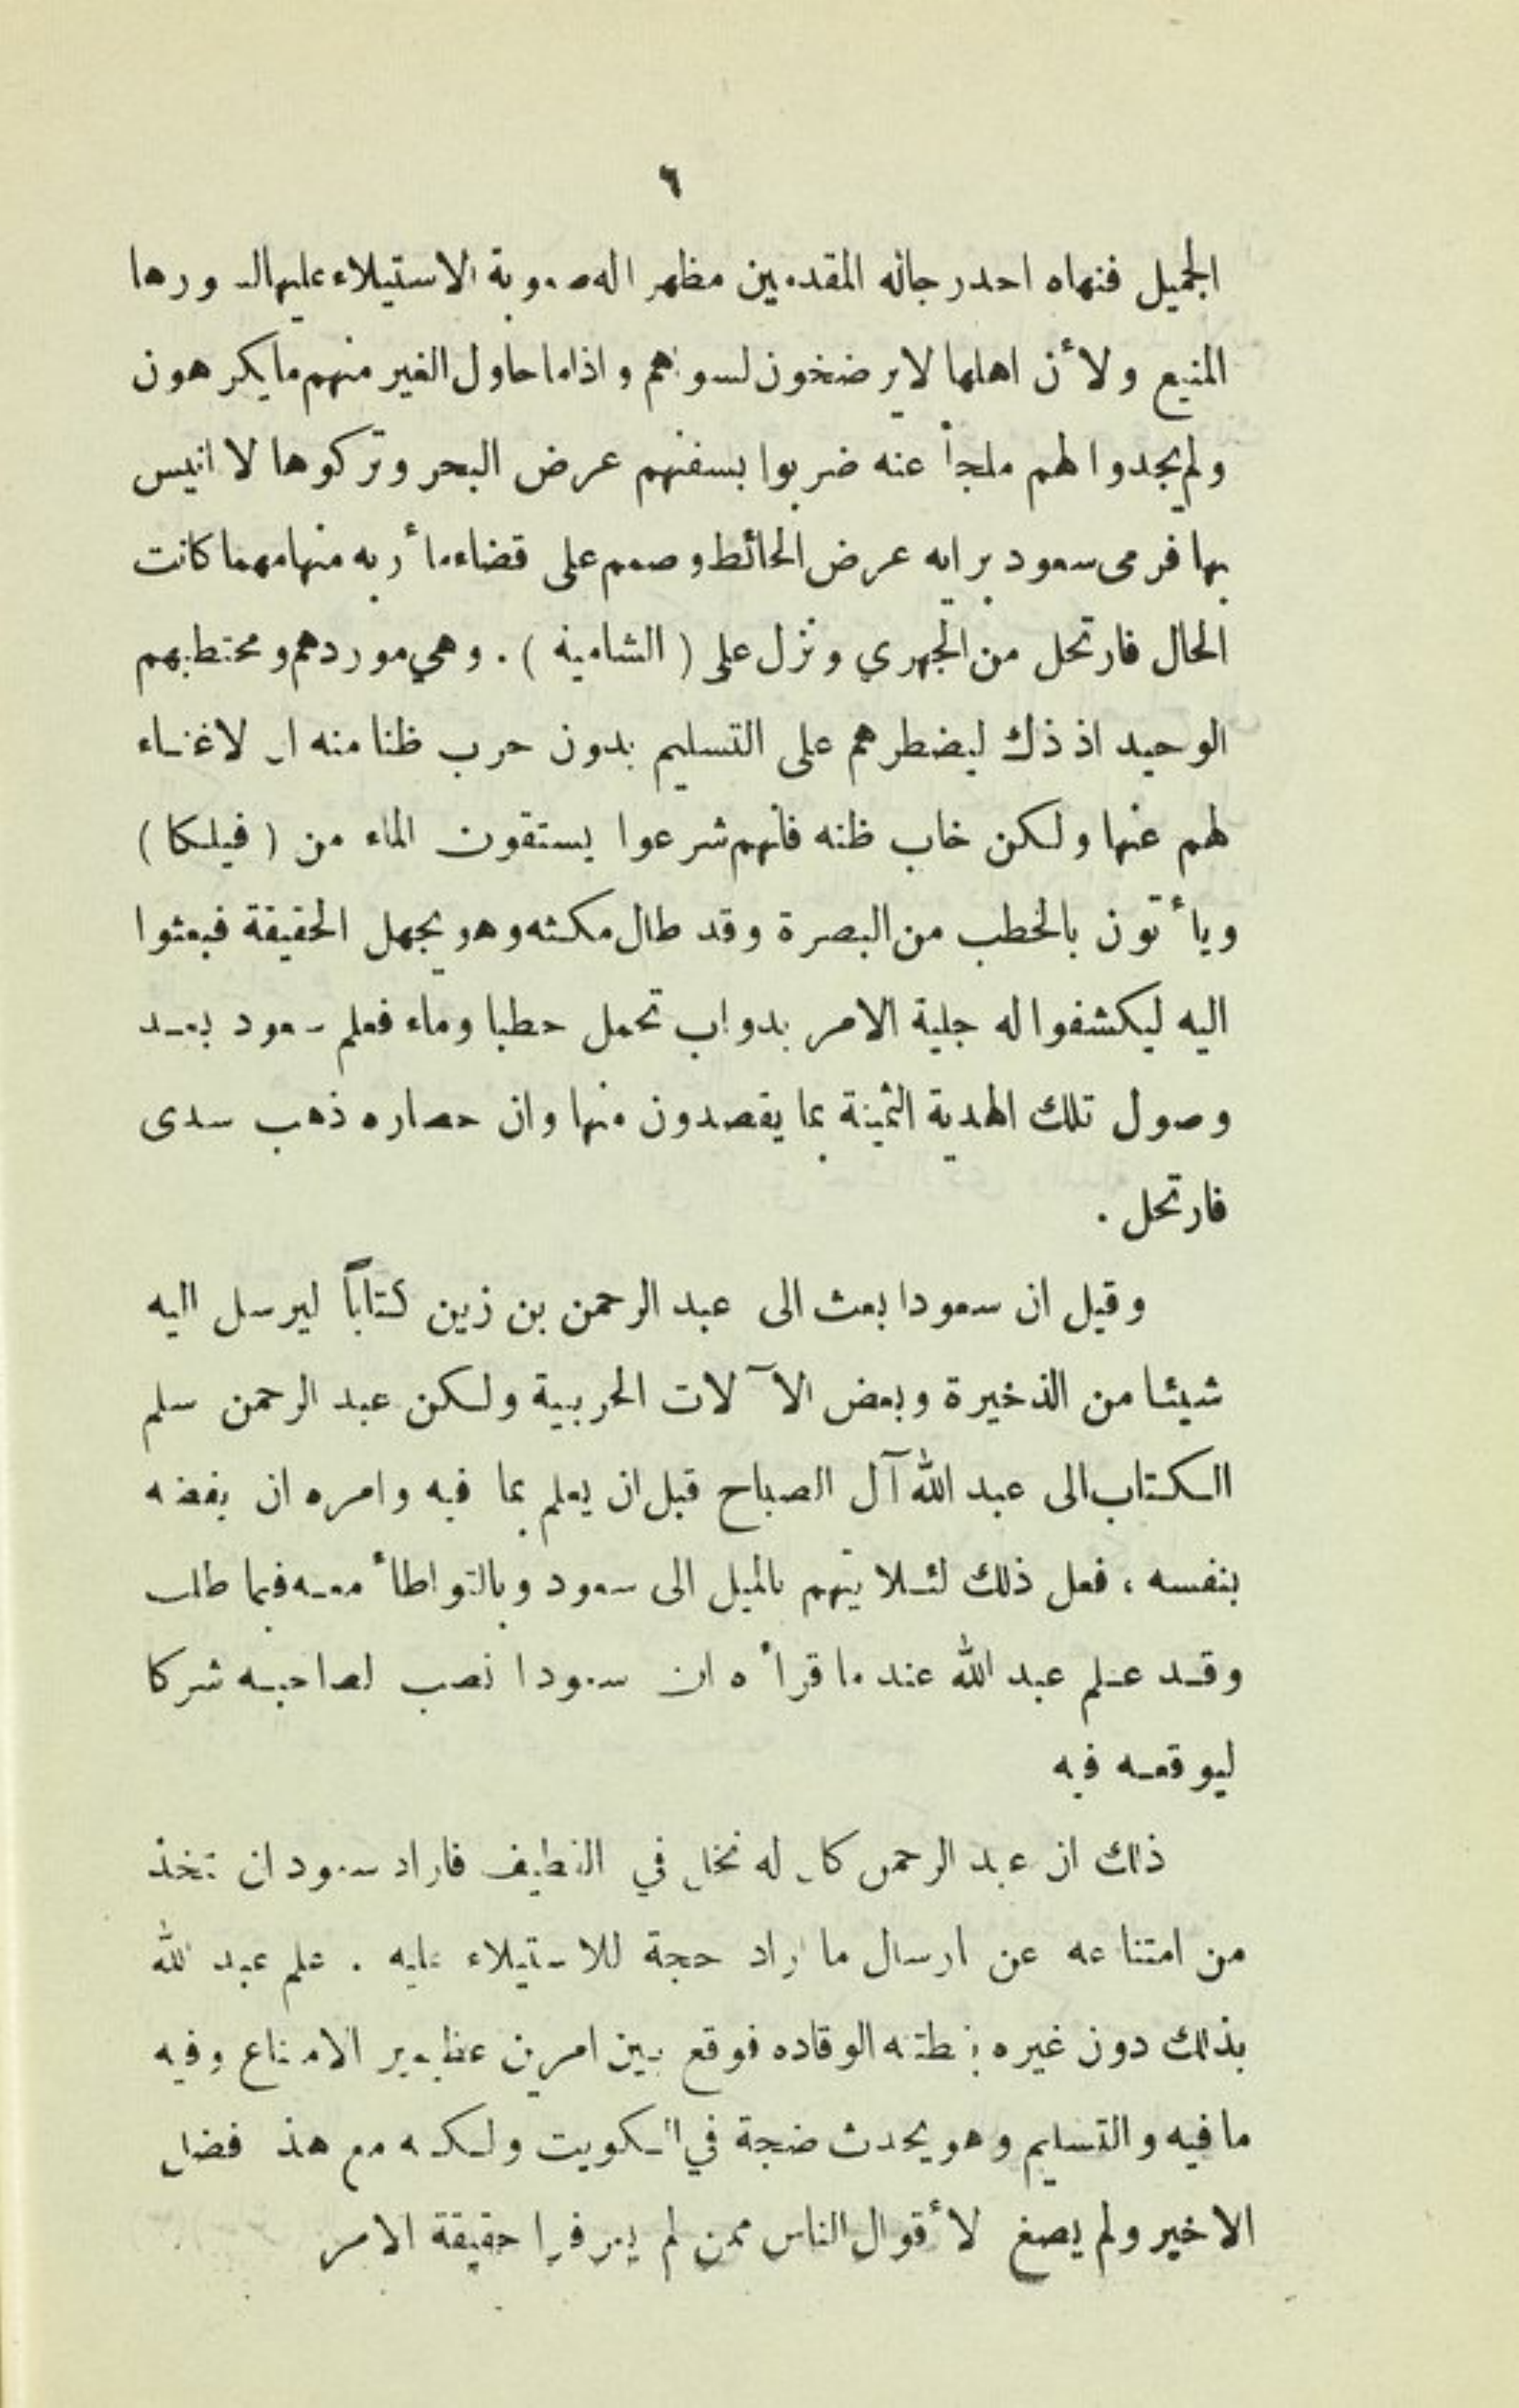 ٦
الجميل فنهاه احد رجاله المقدمين مظهرا له صعوبة الاستيلاء عليها لسورها
المنيع ولأن اهلها لا يرضخون لسواهم واذا ما حاول الغير منهم ما يكرهون
ولم يجدوا لهم ملجأ عنه ضربوا بسفنهم عرض البحر وتركوها لا انيس
بها فرمى سعود برايه عرض الحائط وصمم على قضاء مأربه منها مهما كانت
الحال فارتحل من الجهري ونزل على ( الشامية ) . وهي موردهم ومحتطبهم
الوحيد اذ ذك ليضطرهم على التسليم بدون حرب ظنا منه ان لا غناء
لهم عنها ولكن خاب ظنه فانهم شرعوا يستقون الماء من ( فيلكا )
ويأتون بالخطب من البصرة وقد طال مكثه وهو يجهل الحقيقة فبعثوا
اليه ليكشفوا له جلية الامر بدواب تحمل حطبا وماء فعلم سعود بعد
وصول تلك الهدية الثمينة بما يقصدون منها وان حصاره ذهب سدى
فارتحل .
وقيل ان سعودا بعث الى عبد الرحمن بن زين كتاباً ليرسل اليه
شيئا من الذخيرة وبعض الآلات الحربية ولكن عبد الرحمن سلم
الكتاب الى عبد الله آل الصباح قبل ان يعلم بما فيه وامره ان يفضه
بنفسه ، فعل ذلك لئلا يتهم بالميل الى سعود وبالتواطأ معه فيما طلب
وقد علم عبد الله عند ما قرأه ان سعودا نصب لصاحبه شركا
ليوقعه فيه
ذلك ان عبد الرحمن كان له نخل في القطيف فاراد سعود ان يتخذ
من امتناعه عن ارسال ما اراد حجة للاستيلاء عليه . علم عبد الله
بذلك دون غيره بفطنته الوقاده فوقع بين امرين عظيمين الامتناع وفيه
ما فيه والتسليم وهو يحدث ضجة في الكويت ولكنه مع هذا فضل
الاخير ولم يصغ لأقوال الناس ممن لم يعرفوا حقيقة الامر